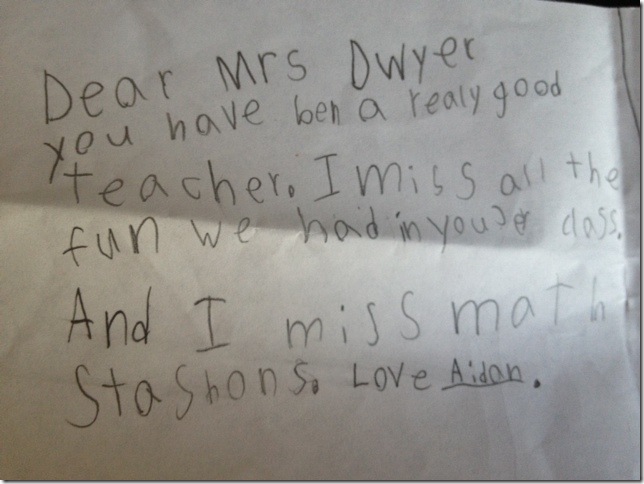 Dear Mrs Dwyer
you have ben a realy good
teacher. I miss all the
fun we had in youer class.
And I miss math
Stashons. Love Aidan.